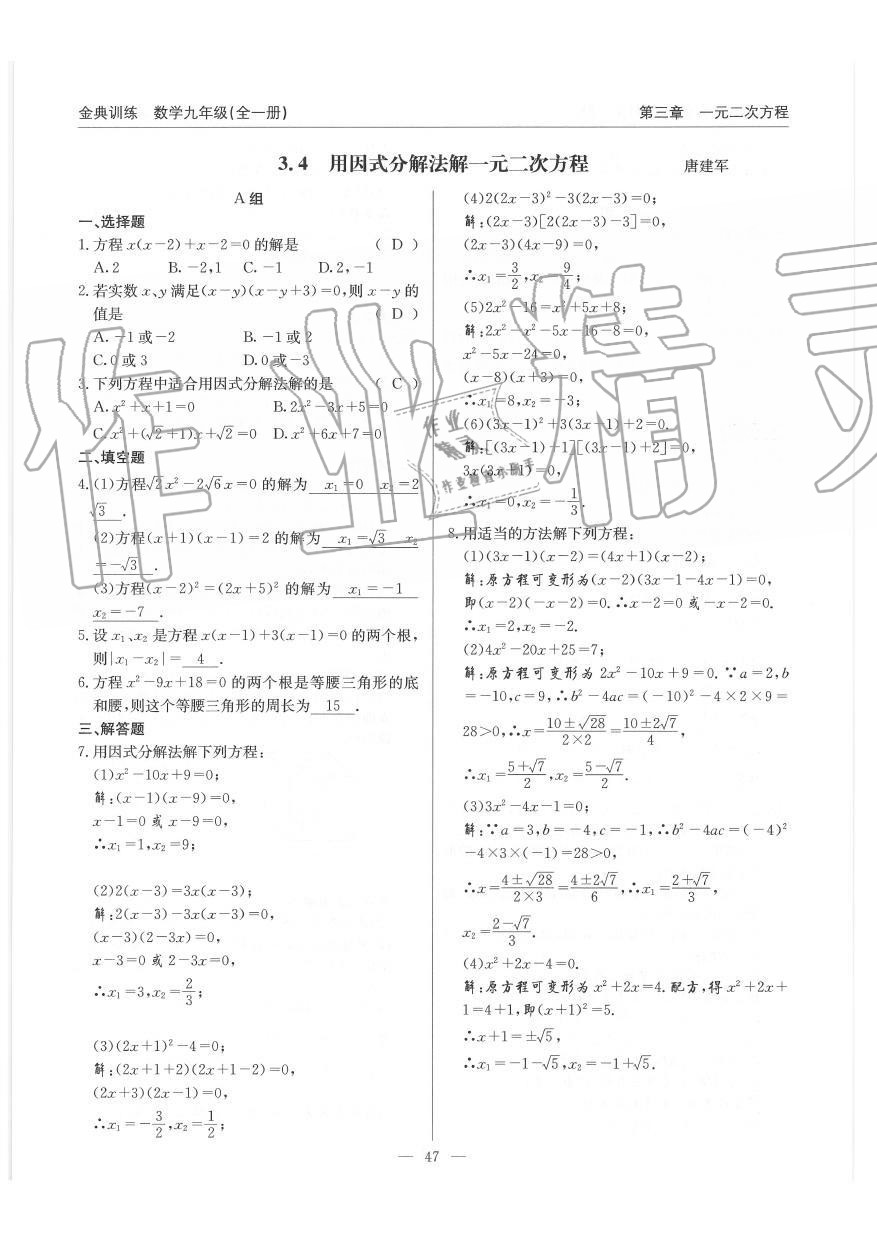 金典训练　数学九年级(全一册)　　第三章　一元二次方程
3.4　用因式分解法解一元二次方程　　唐建军
A组
一、选择题
1.方程x(x-2)+x-2=0的解是　( D )
A.2　B.-2,1　C.-1　D.2,-1
2.若实数x、y满足(x-y)(x-y+3)=0,则x-y的
值是　( D )
A.-1或-2　B.-1或2
C.0或3　D.0或-3
3.下列方程中适合用因式分解法解的是　( C )
A.x²+x+1=0　B.2x²-3x+5=0
C.x²+(√2+1)x+√2=0　D.x²+6x+7=0
二、填空题
4.(1)方程√2x²-2√6x=0的解为 x₁=0　x₂=2
√3 .
(2)方程(x+1)(x-1)=2的解为 x₁=√3　x₂
=-√3 .
(3)方程(x-2)²=(2x+5)²的解为 x₁=-1
x₂=-7 .
5.设x₁、x₂是方程x(x-1)+3(x-1)=0的两个根,
则|x₁-x₂|= 4 .
6.方程x²-9x+18=0的两个根是等腰三角形的底
和腰,则这个等腰三角形的周长为 15 .
三、解答题
7.用因式分解法解下列方程:
(1)x²-10x+9=0;
解:(x-1)(x-9)=0,
x-1=0或x-9=0,
∴x₁=1,x₂=9;
(2)2(x-3)=3x(x-3);
解:2(x-3)-3x(x-3)=0,
(x-3)(2-3x)=0,
x-3=0或2-3x=0,
∴x₁=3,x₂=2/3;
(3)(2x+1)²-4=0;
解:(2x+1+2)(2x+1-2)=0,
(2x+3)(2x-1)=0,
∴x₁=-3/2,x₂=1/2;
(4)2(2x-3)²-3(2x-3)=0;
解:(2x-3)[2(2x-3)-3]=0,
(2x-3)(4x-9)=0,
∴x₁=3/2,x₂=9/4;
(5)2x²-16=x²+5x+8;
解:2x²-x²-5x-16-8=0,
x²-5x-24=0,
(x-8)(x+3)=0,
∴x₁=8,x₂=-3;
(6)(3x-1)²+3(3x-1)+2=0.
解:[(3x-1)+1][(3x-1)+2]=0,
3x(3x+1)=0,
∴x₁=0,x₂=-1/3.
8.用适当的方法解下列方程:
(1)(3x-1)(x-2)=(4x+1)(x-2);
解:原方程可变形为(x-2)(3x-1-4x-1)=0,
即(x-2)(-x-2)=0.∴x-2=0或-x-2=0.
∴x₁=2,x₂=-2.
(2)4x²-20x+25=7;
解:原方程可变形为2x²-10x+9=0.∵a=2,b
=-10,c=9,∴b²-4ac=(-10)²-4×2×9=
28>0,∴x=(10±√28)/(2×2)=(10±2√7)/4,
∴x₁=(5+√7)/2,x₂=(5-√7)/2.
(3)3x²-4x-1=0;
解:∵a=3,b=-4,c=-1,∴b²-4ac=(-4)²
-4×3×(-1)=28>0,
∴x=(4±√28)/(2×3)=(4±2√7)/6,∴x₁=(2+√7)/3,
x₂=(2-√7)/3.
(4)x²+2x-4=0.
解:原方程可变形为x²+2x=4.配方,得x²+2x+
1=4+1,即(x+1)²=5.
∴x+1=±√5,
∴x₁=-1-√5,x₂=-1+√5.
— 47 —
作业精灵
作业
精灵